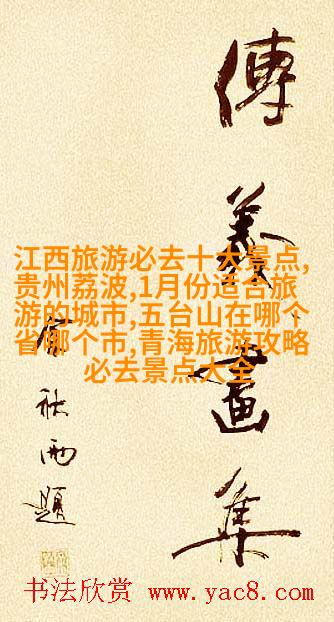 傅義畫集
江西旅游必去十大景点,
贵州荔波,1月份适合旅
游的城市,五台山在哪个
省哪个市,青海旅游攻略
必去景点大全
题
书法欣赏 www.yac8.com